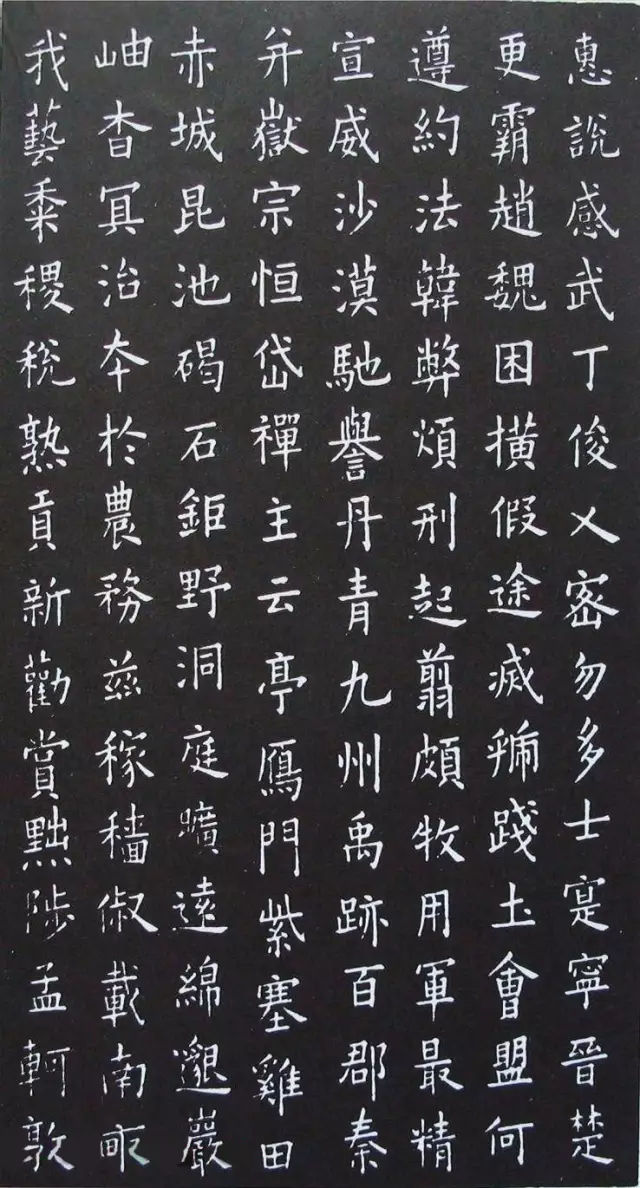 惠說感武丁俊乂密勿多士寔寧晉楚
更霸趙魏困橫假途滅虢踐土會盟何
遵約法韓弊煩刑起翦頗牧用軍最精
宣威沙漠馳譽丹青九州禹跡百郡秦
并嶽宗恒岱禪主云亭鴈門紫塞雞田
赤城昆池碣石鉅野洞庭曠遠綿邈巖
岫杳冥治本於農務茲稼穡俶載南畝
我藝黍稷稅熟貢新勸賞黜陟孟軻敦